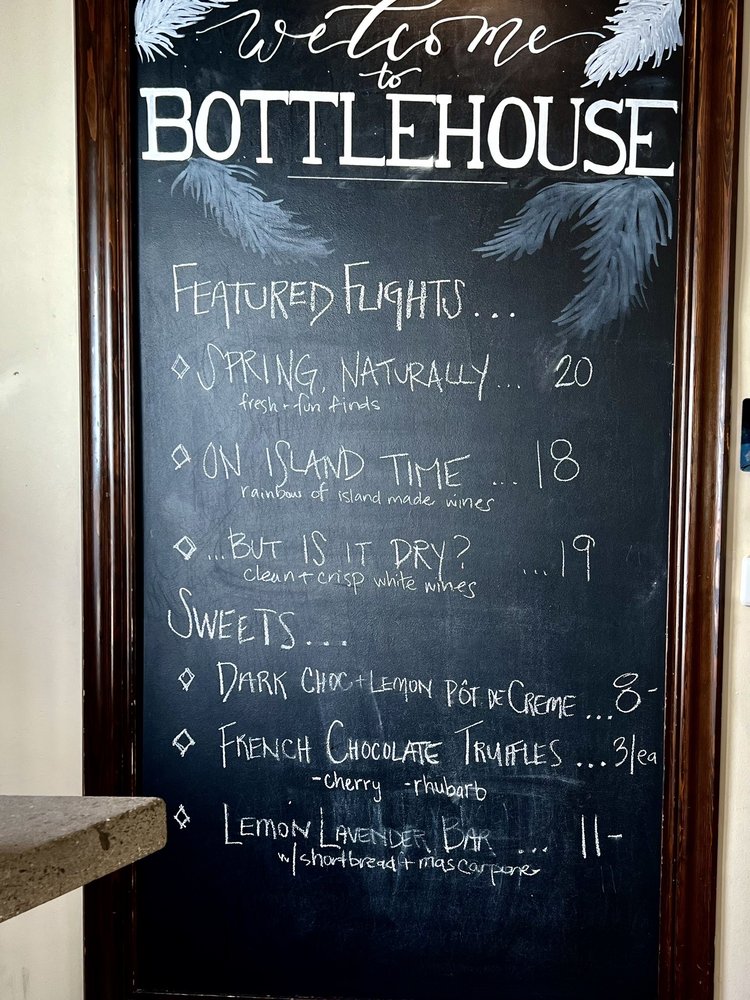 welcome
to
BOTTLEHOUSE
FEATURED FLIGHTS...
SPRING, NATURALLY... 20
fresh + fun finds
ON ISLAND TIME ... 18
rainbow of island made wines
...BUT IS IT DRY? ...19
clean + crisp white wines
SWEETS...
DARK CHOC + LEMON PÔT DE CREME ...8-
FRENCH CHOCOLATE TRUFFLES ...3/ea
-cherry -rhubarb
LEMON LAVENDER BAR ... 11-
w/ shortbread + mascarpone